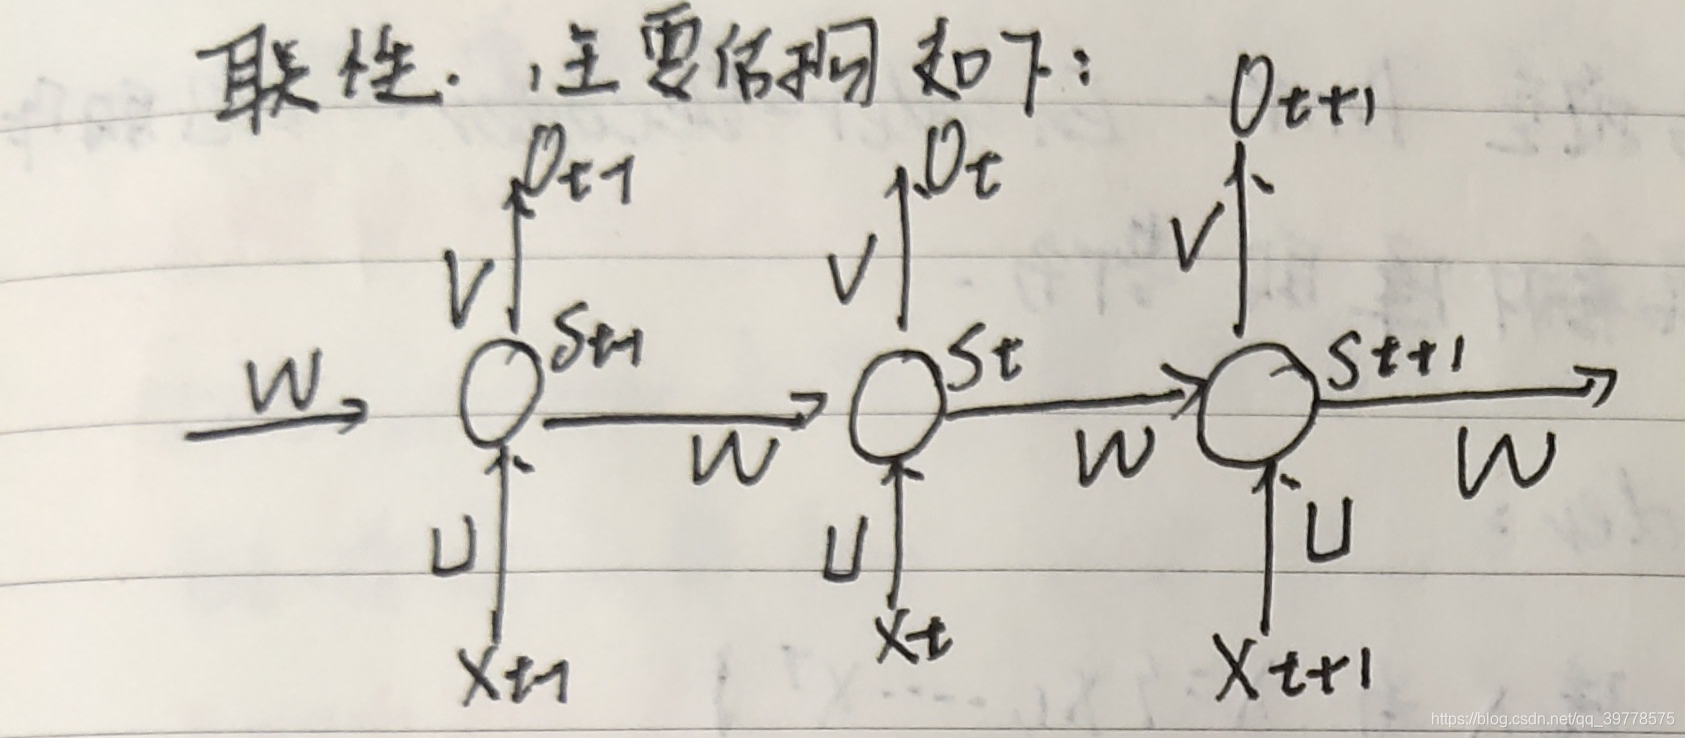 联性. 主要结构如下:
Ot-1 Ot Ot+1
V V V
St-1 St St+1
W W W W
U U U
Xt-1 Xt Xt+1
https://blog.csdn.net/qq_39778575